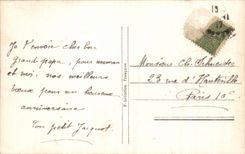 Je t'envoie cher bon
grand-papa, pour maman
et moi, nos meilleurs
vœux pour un heureux
anniversaire
Ton petit Jacquot
Monsieur Ch. Schneider
23 rue d'Hauteville
Paris 10e